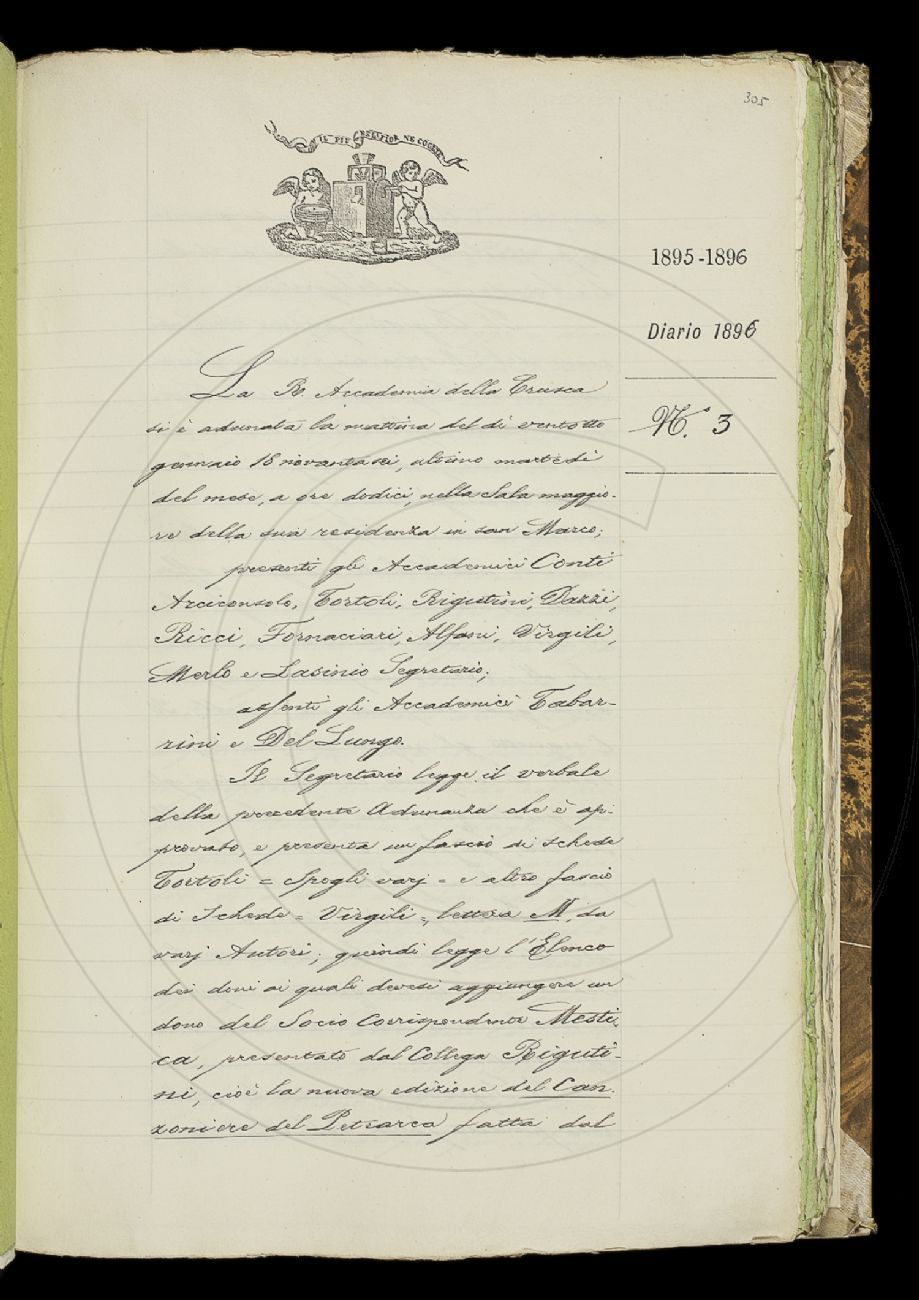 305
IL PIV BEL FIOR NE COGLIE
1895-1896
Diario 1896
N.° 3
La R. Accademia della Crusca
si è adunata la mattina del dì ventotto
gennaio 18novantasei, ultimo martedì
del mese, a ore dodici, nella Sala maggio-
re della sua residenza in san Marco;
presenti gli Accademici Conti
Arciconsolo, Tortoli, Rigutini, Dazzi,
Ricci, Fornaciari, Alfani, Virgili,
Merlo e Lasinio Segretario;
assenti gli Accademici Tabar-
rini e Del Lungo.
Il Segretario legge il verbale
della precedente Adunanza che è ap-
provato, e presenta un fascio di schede
Tortoli = Spogli varj = e altro fascio
di Schede = Virgili =, lettera M, da
varj Autori; quindi legge l'Elenco
dei doni ai quali devesi aggiungere un
dono del Socio Corrispondente Mesti-
ca, presentato dal Collega Riguti-
ni, cioè la nuova edizione del Can-
zoniere del Petrarca fatta dal